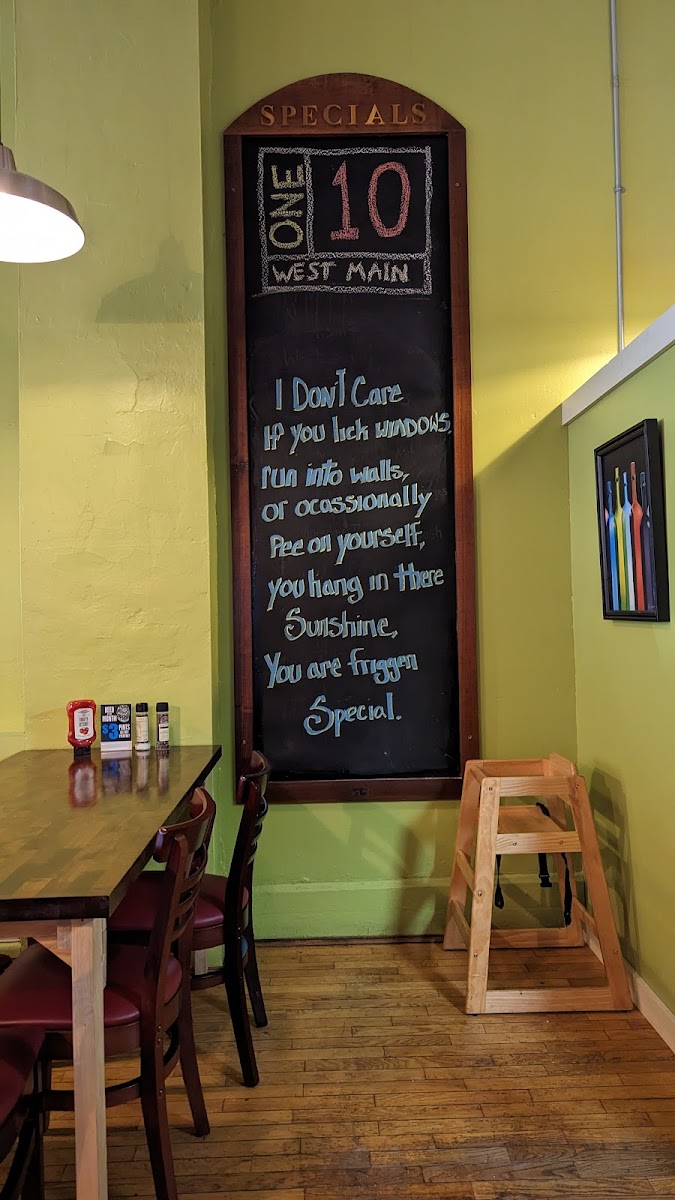 SPECIALS
ONE
10
WEST MAIN
I Don't Care
If you lick windows,
run into walls,
or ocassionally
Pee on yourself,
you hang in there
Sunshine,
You are friggen
Special.
$3
PINTS